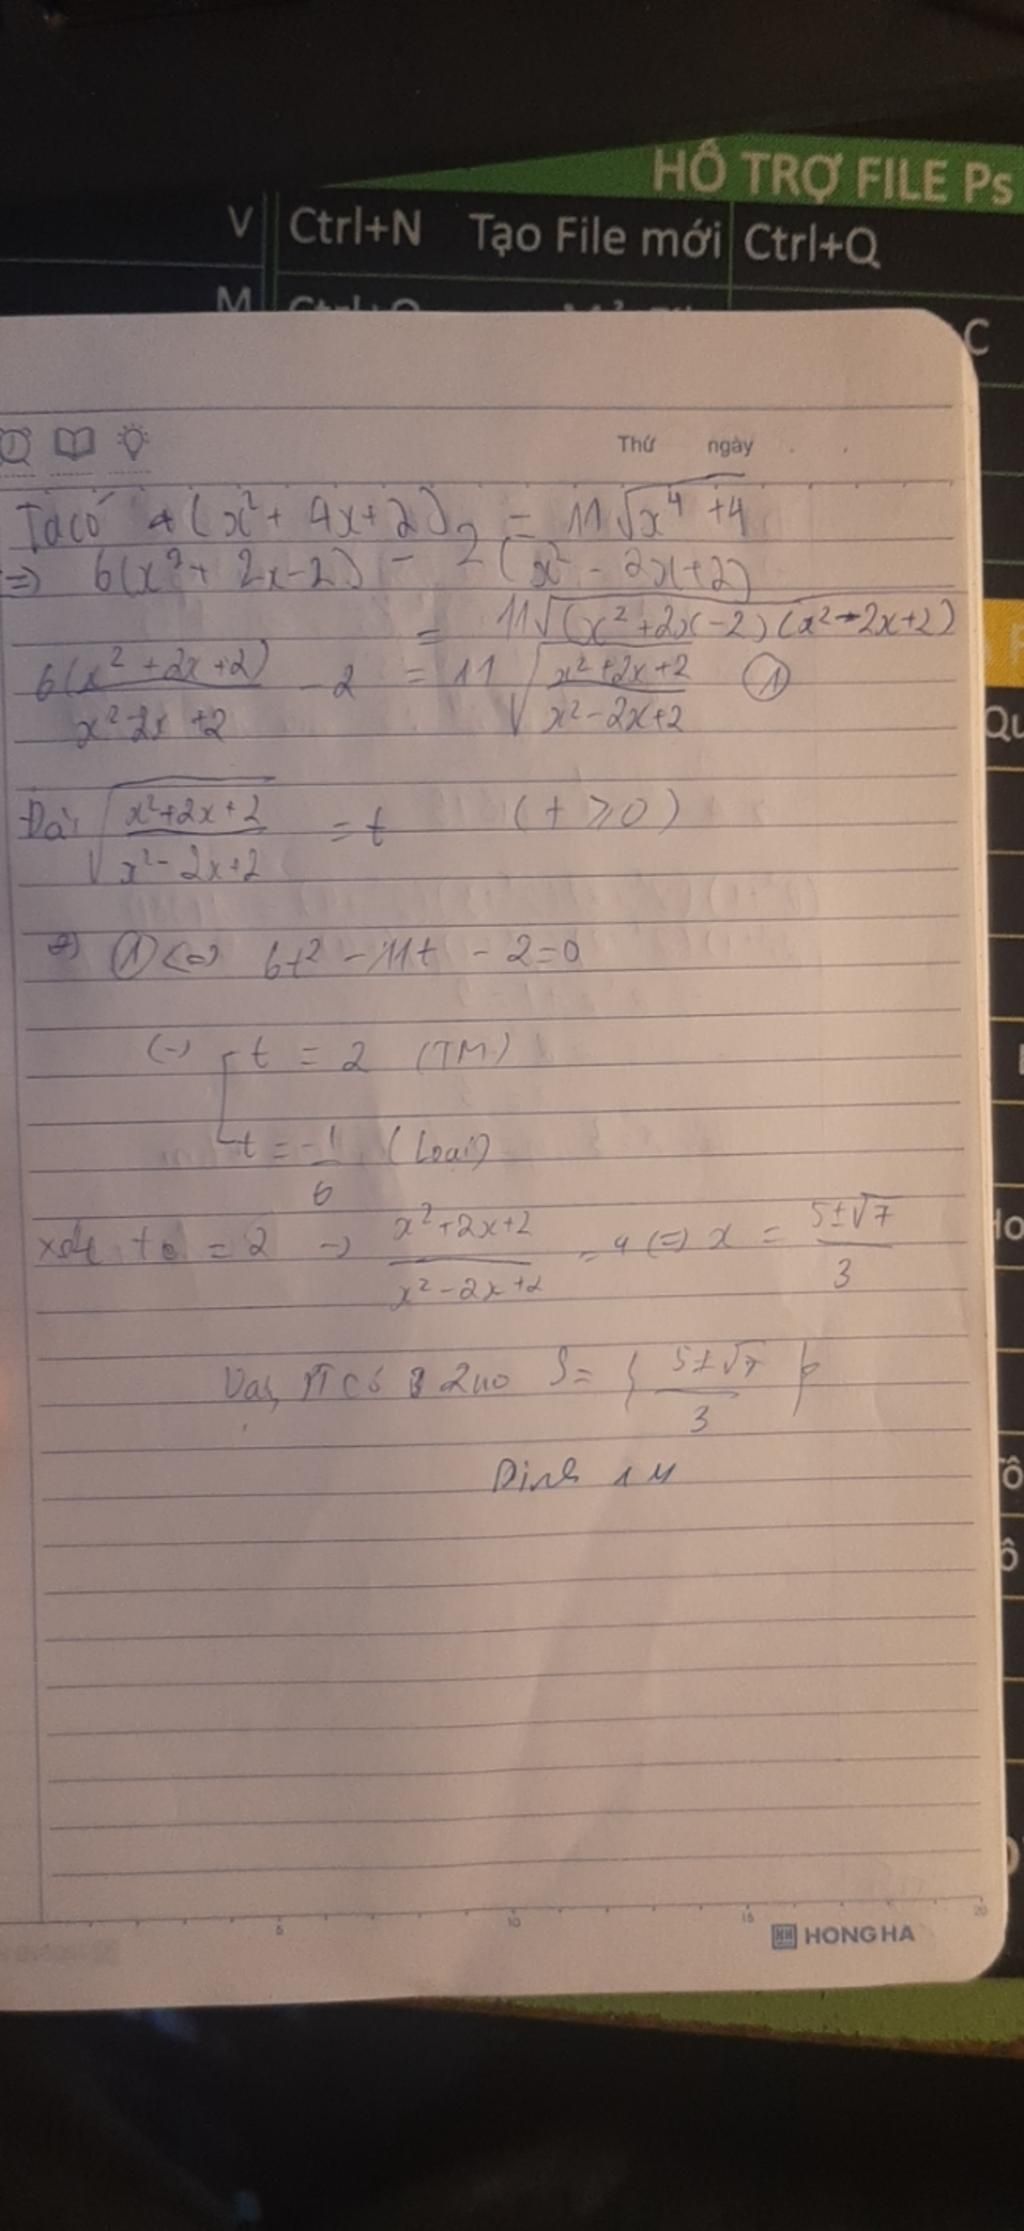 HỖ TRỢ FILE Ps
V Ctrl+N Tạo File mới Ctrl+Q
M
C
Thứ ngày
Ta có 4(x² + 4x + 2) = 11√(x⁴ + 4)
=> 6(x² + 2x - 2) - 2(x² - 2x + 2)
= 11√((x² + 2x - 2)(x² - 2x + 2))
6(x² + 2x + 2)/(x² - 2x + 2) - 2 = 11√((x² + 2x + 2)/(x² - 2x + 2)) ①
√((x² + 2x + 2)/(x² - 2x + 2)) = t (t ≥ 0)
① <=> 6t² - 11t - 2 = 0
t = 2 (TM)
t = -1/6 (Loại)
t = 2 -> (x² + 2x + 2)/(x² - 2x + 2) = 4 (=) x = (5 ± √7)/3
S = { (5 ± √7)/3 }
Qu
5 10 15 20
HONG HA